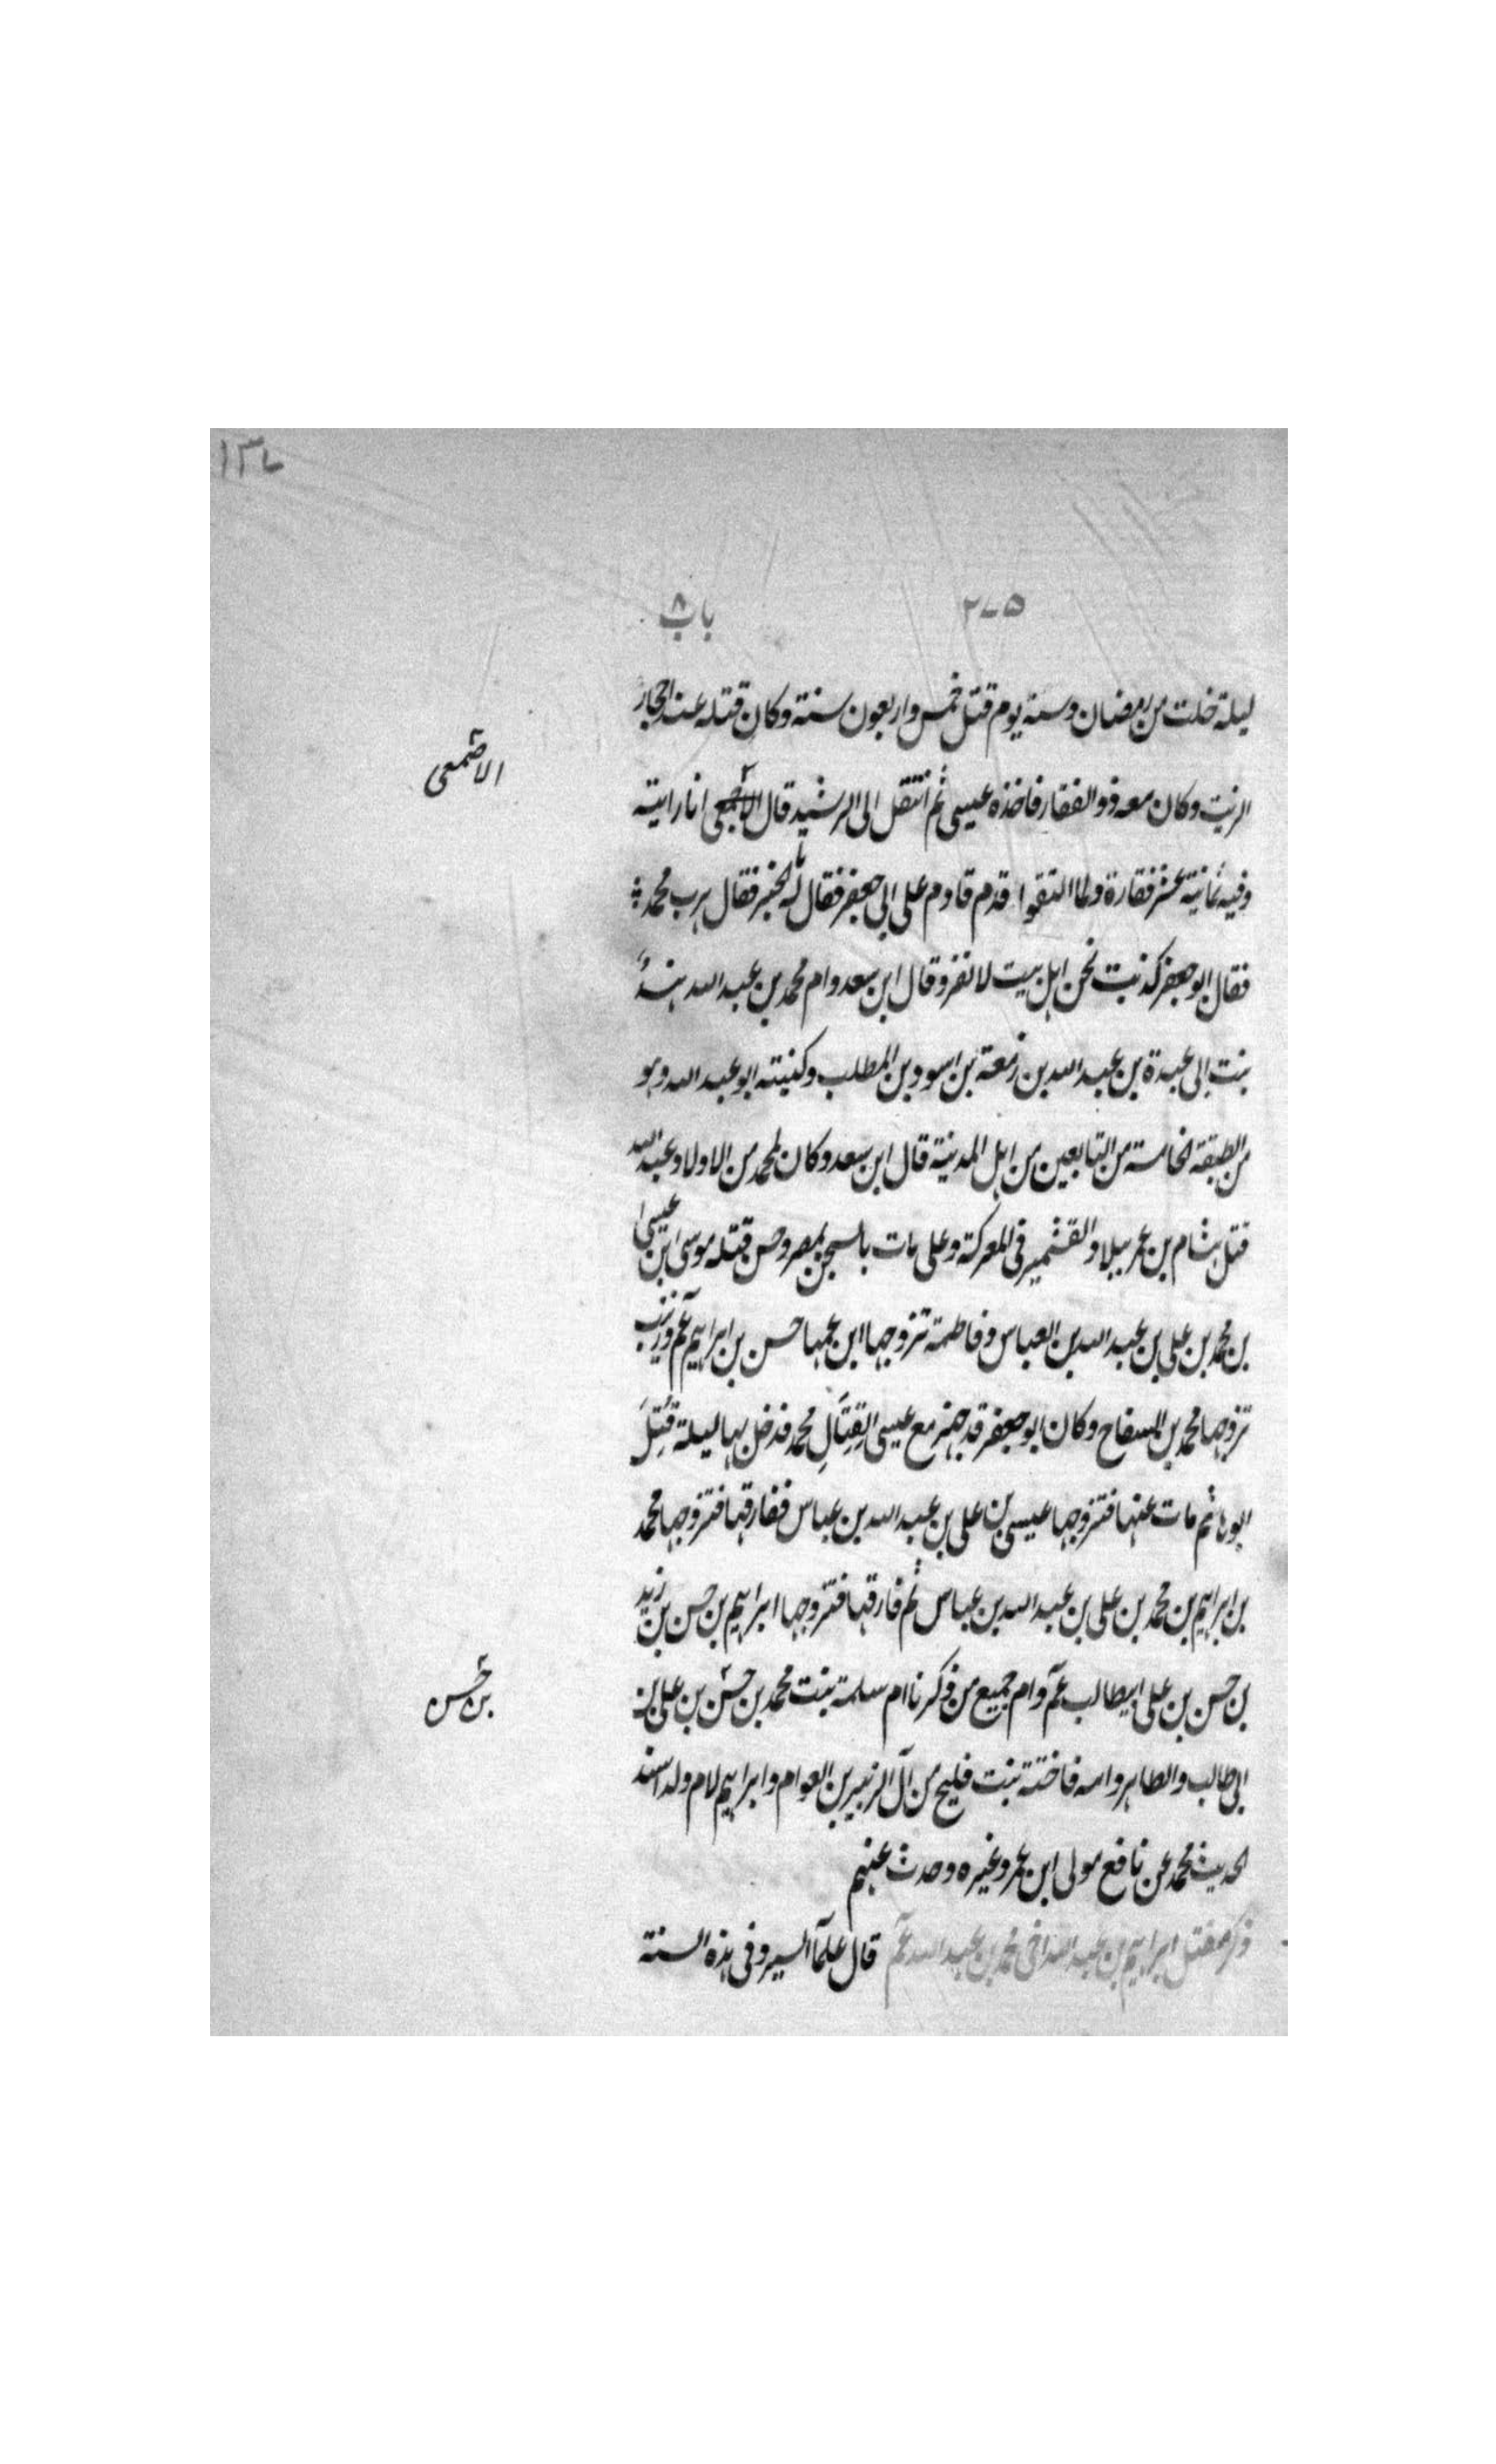 ١٣٧
٢٧٥ باب ٨
ليلة خلت من رمضان وسنه يوم قتل خمس واربعون سنة وكان قتله عند احجار
الزيت وكان معه ذو الفقار فاخذه عيسى ثم انتقل الى الرشيد قال الاصمعى انا رايته
وفيه ثمانية عشر فقارة ولما التقوا قدم قادم على ابى جعفر فقال له ما الخبر فقال هرب محمد
فقال ابو جعفر كذبت نحن اهل بيت لا نفر وقال ابن سعد وام محمد بن عبد الله هند
بنت ابى عبيدة بن عبد الله بن زمعة بن اسود بن المطلب وكنيته ابو عبد الله وهو
من الطبقة الخامسة من التابعين من اهل المدينة قال ابن سعد وكان لمحمد من الاولاد عبد الله
قتل هشام بن عمر ببلاد القشمير فى المعركة وعلى مات بالسجن بمصر وحسن قتله موسى ابن عيسى
بن محمد بن على بن عبد الله بن العباس وفاطمة تزوجها ابن عمها حسن بن ابراهيم عم وزينب
تزوجها محمد بن السفاح وكان ابو جعفر قد جهز مع عيسى لقتال محمد فدخل بها ليلة قتل
ابوها ثم مات عنها فتزوجها عيسى بن على بن عبد الله بن عباس ففارقها فتزوجها محمد
بن ابراهيم بن محمد بن على بن عبد الله بن عباس ثم فارقها فتزوجها ابراهيم بن حسن بن زيد
بن حسن بن على ابيطالب عم وام جميع من ذكرنا ام سلمة بنت محمد بن حسن بن على بن
ابى طالب والطاهر وامه فاختة بنت فليح من آل الزبير بن العوام وابراهيم لام ولد اسند
الحديث محمد عن نافع مولى ابن عمر وغيره وحدث عنهم
ذكر مقتل ابراهيم بن عبد الله اخى محمد بن عبد الله عم قال علمآ السير وفى هذه السنة
الاصمعى
بن حسن